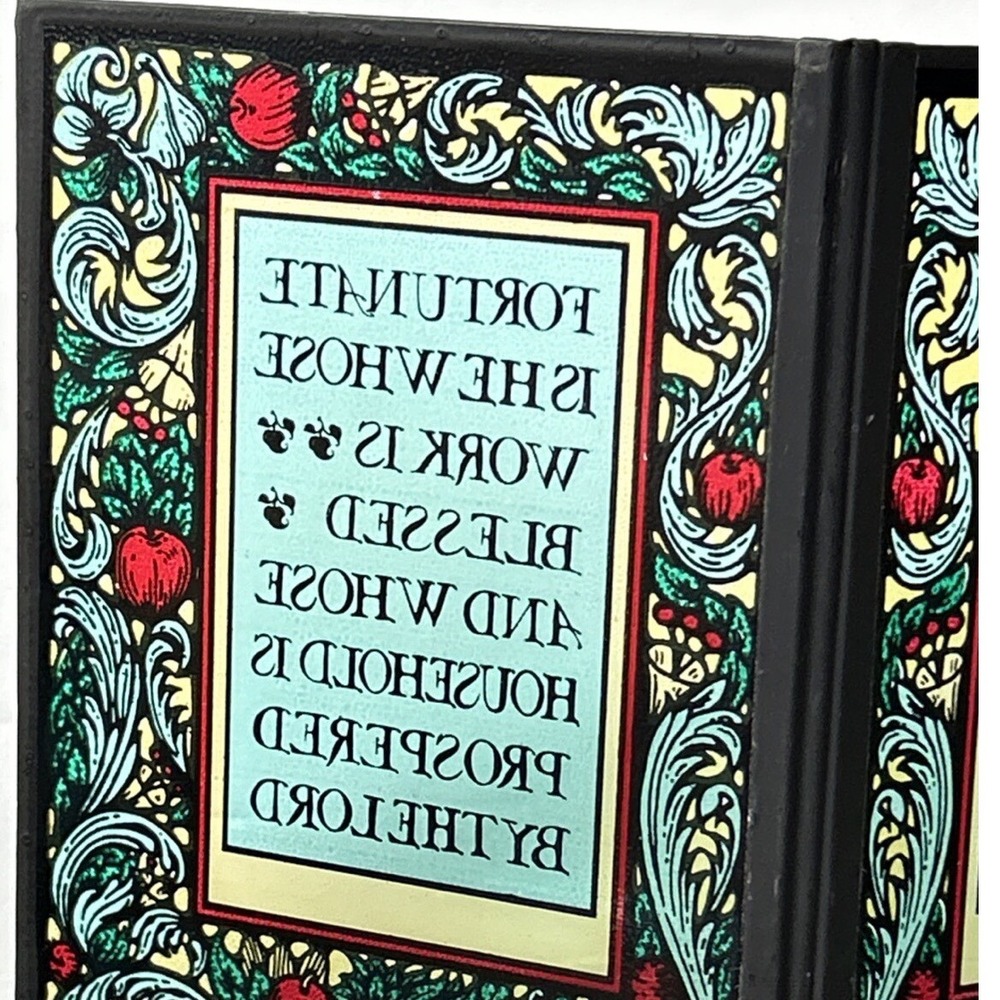 FORTUNATE
IS HE WHOSE
WORK IS
BLESSED
AND WHOSE
HOUSEHOLD IS
PROSPERED
BY THE LORD